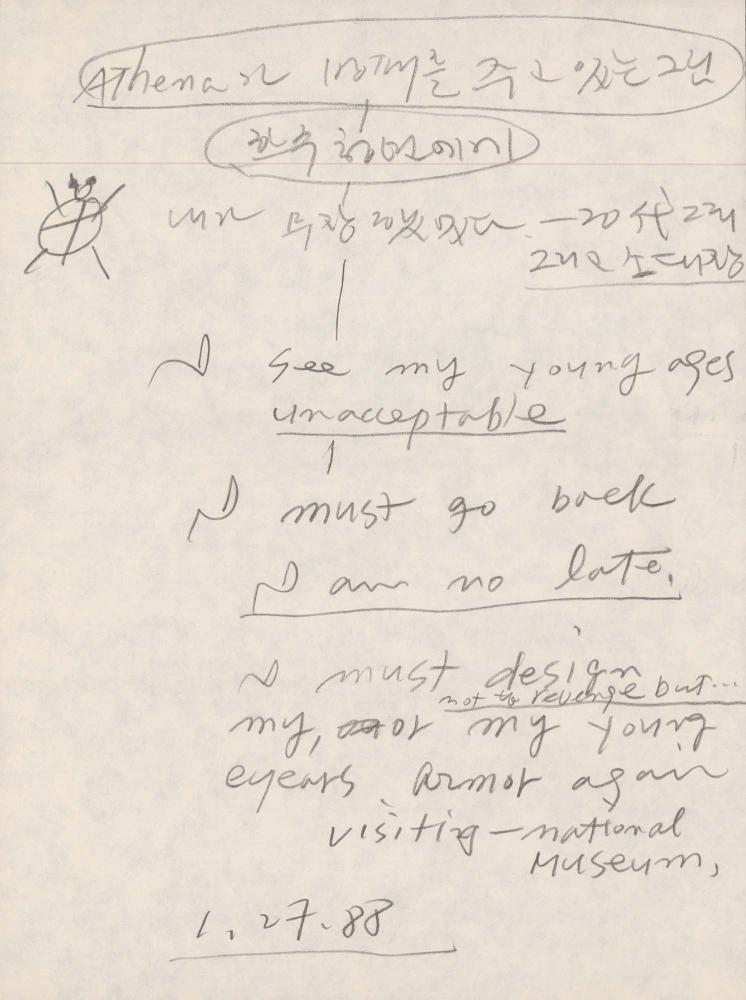 Athena가 방패를 주고 있는 그림
한국 청년에게
내가 무장 했었다 — 20代 그때
그리고 소대장
I see my young ages
unacceptable
I must go back
I am no late.
I must design
not to revenge but...
my, or my young
eyears armor again
visiting — national
Museum,
1. 27. 88